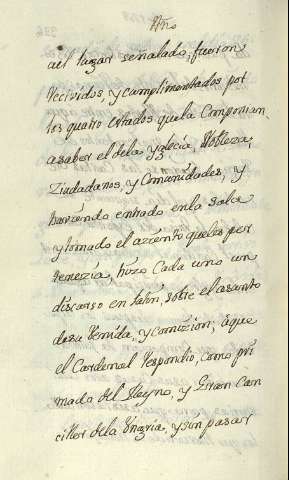 Año
ael lugar señalado, fueron
recividos, y cumplimentados por
los quatro estados que la Componian,
asaber el dela yglecia, Nobleza,
Ziudadanos, y Comunidades, y
haviendo entrado enla sala
y tomado el aziento queles per
tenezia, hizo Cada uno un
discurso en latin, sobre el asunto
desu Venida, y comizion, aque
el Cardenal respondio, como pri
mado del Reyno, y Gran Can
ciller dela Ungria, y sin pasar